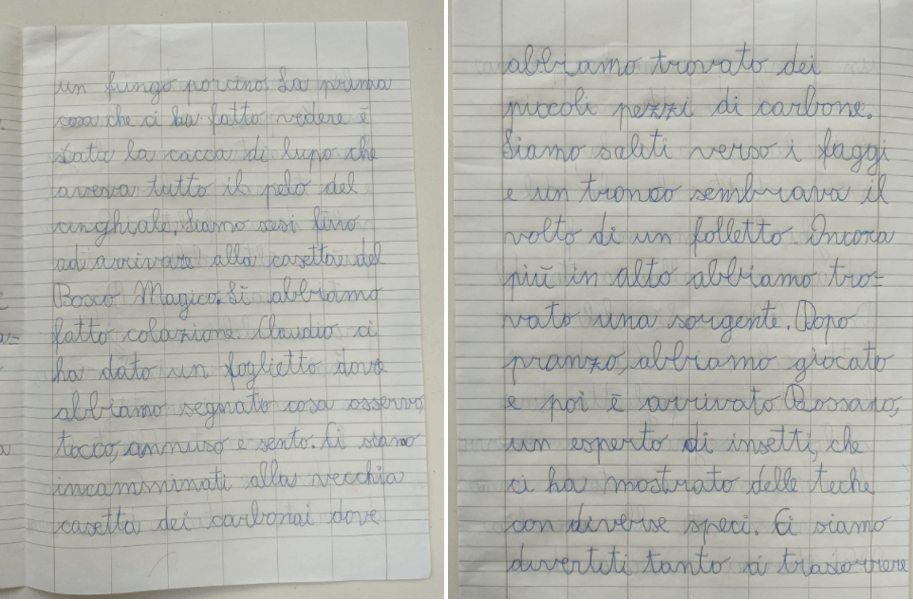 un fungo porcino. La prima
cosa che ci ha fatto vedere è
stata la cacca di lupo che
aveva tutto il pelo del
cinghiale. Siamo sesi fino
ad arrivare alla casetta del
Bosco Magico. Lì abbiamo
fatto colazione. Claudio ci
ha dato un foglietto dove
abbiamo segnato cosa osservo,
tocco, annuso e sento. Ci siamo
incamminati alla vecchia
casetta dei carbonai dove
abbiamo trovato dei
piccoli pezzi di carbone.
Siamo saliti verso i faggi
e un tronco sembrava il
volto di un folletto. Ancora
più in alto abbiamo tro-
vato una sorgente. Dopo
pranzo, abbiamo giocato
e poi è arrivato Rossano,
un esperto di insetti, che
ci ha mostrato delle teche
con diverse speci. Ci siamo
divertiti tanto a trascorrere